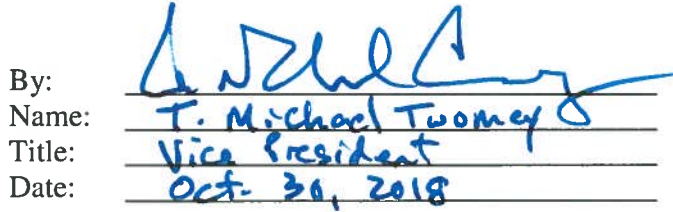 By:
Name: T. Michael Twomey
Title: Vice President
Date: Oct. 30, 2018